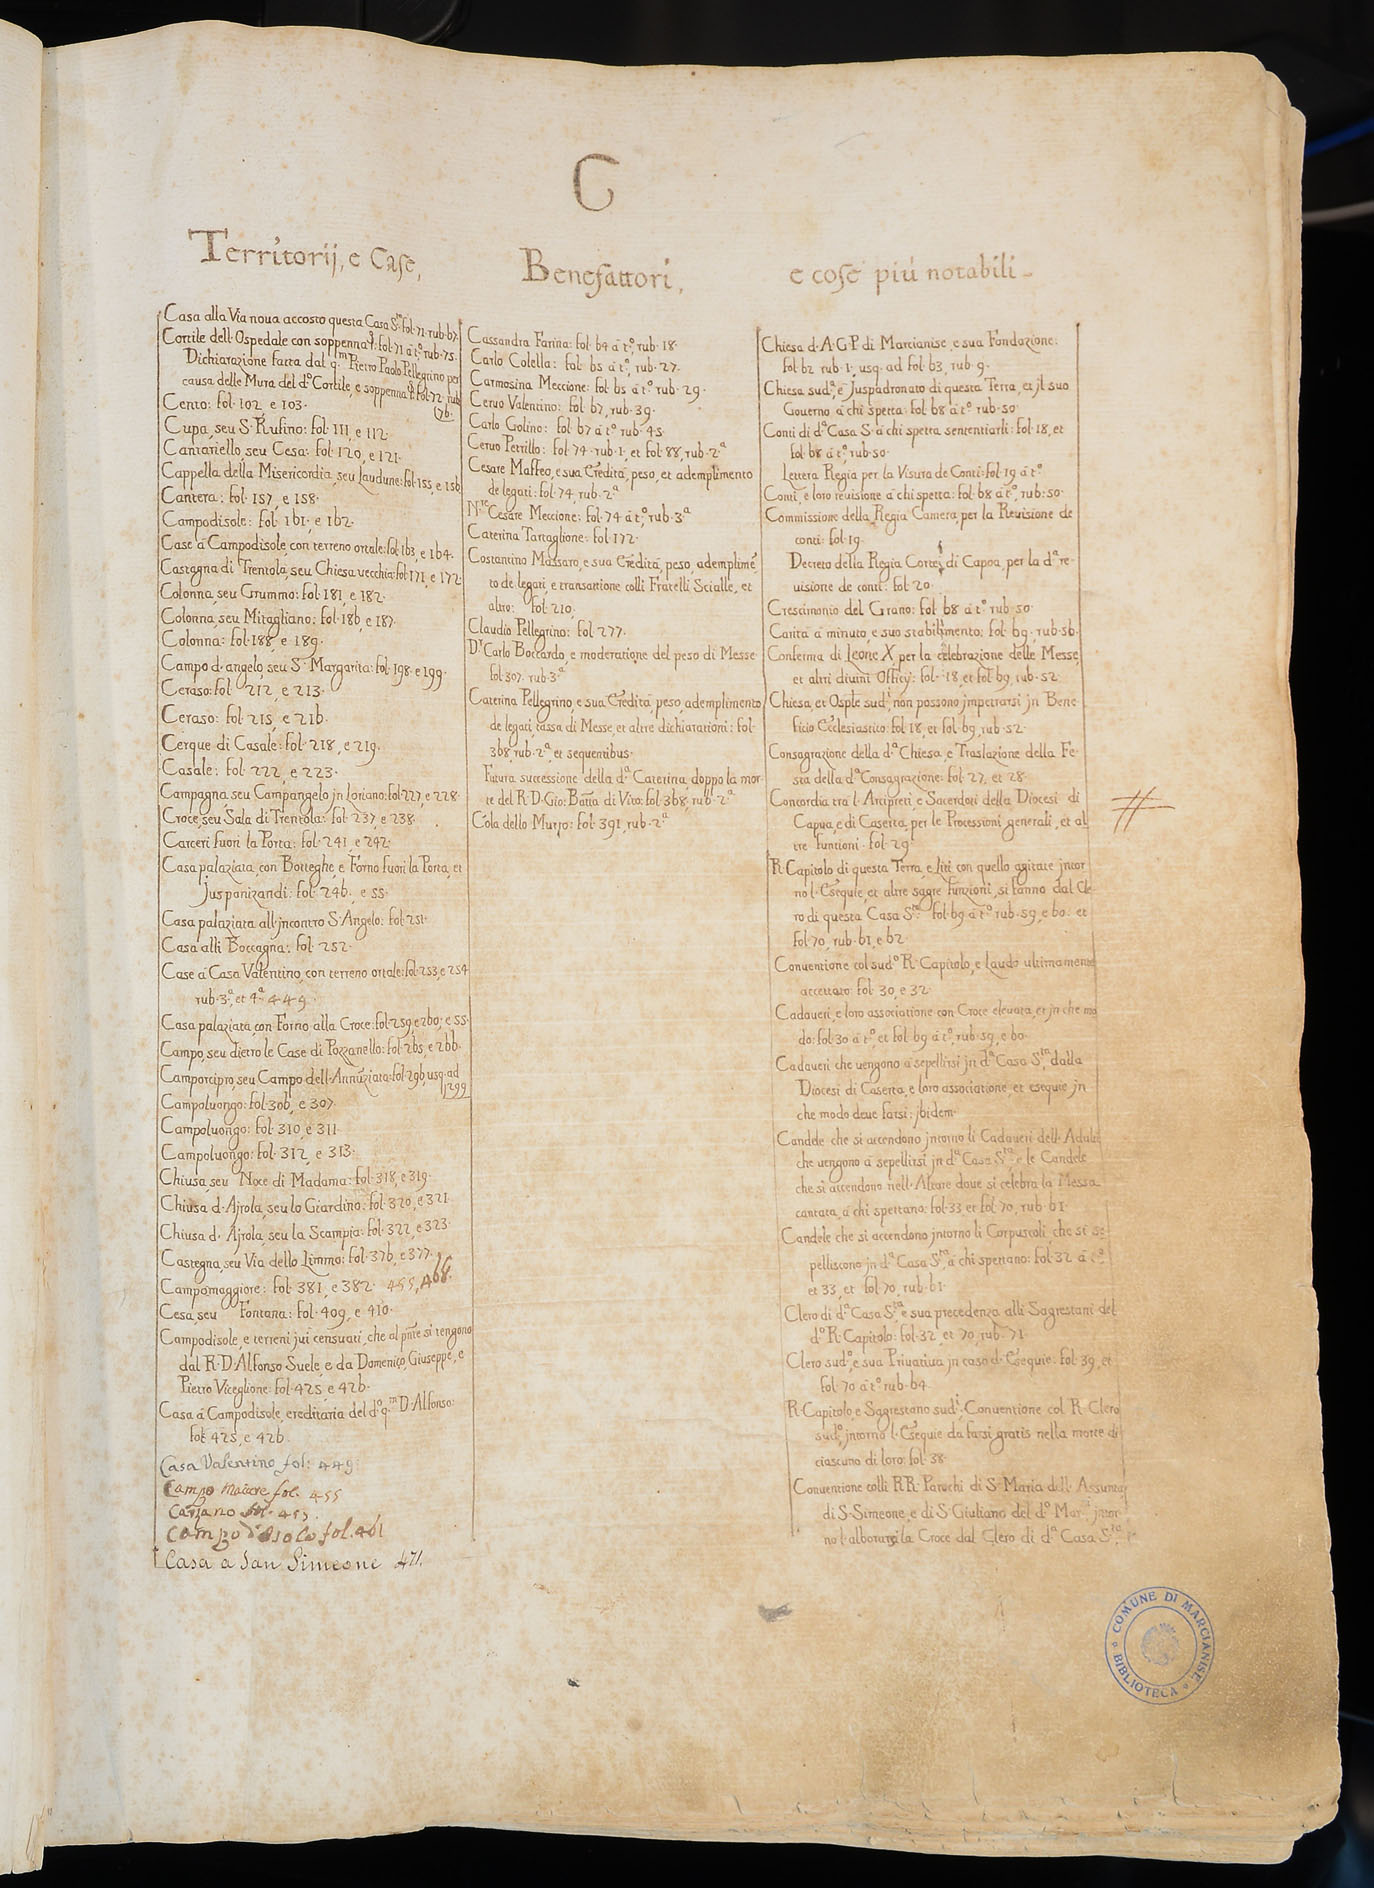 C
Territorij, e Case,
Casa alla Via noua accosto questa Casa S.ta: fol. 71. rub. 67.
Cortile dell'Ospedale con soppenna q.: fol. 71 à t.º, rub. 75.
Dichiarazione fatta dal q.m Pietro Paolo Pellegrino per
causa delle Mura del d.º Cortile, e soppenna: fol. 72. rub.
76.
Cento: fol. 102 e 103.
Cupa, seu S. Rufino: fol. 111, e 112.
Cantariello, seu Cesa: fol. 120, e 121.
Cappella della Misericordia, seu Laudune: fol. 155, e 156
Cantera: fol. 157, e 158.
Campodisole: fol. 161, e 162.
Case à Campodisole, con terreno ortale: fol. 163, e 164.
Castagna di Trentola, seu Chiesa vecchia: fol. 171, e 172
Colonna, seu Grummo: fol. 181, e 182.
Colonna, seu Miragliano: fol. 186, e 187.
Colonna: fol. 188, e 189.
Campo d'angelo, seu S. Margarita: fol. 198. e 199.
Ceraso: fol. 212, e 213.
Ceraso: fol. 215, e 216.
Cerque di Casale: fol. 218, e 219.
Casale: fol. 222, e 223.
Campagna, seu Campangelo jn Loriano: fol. 227, e 228.
Croce, seu Sala di Trentola: fol. 237, e 238.
Carceri fuori la Porta: fol. 241, e 242.
Casa palaziata, con Botteghe, e Forno fuori la Porta, et
Juspanizandi: fol. 246, e ss.
Casa palaziata all'jncontro S. Angelo: fol. 251.
Casa alli Boccagna: fol. 252.
Case à Casa Valentino, con terreno ortale: fol. 253, e 254
rub. 3.ª, et 4.ª 449.
Casa palaziata, con Forno alla Croce: fol. 259, e 260, e ss.
Campo, seu dietro le Case di Pozzanello: fol. 265, e 266.
Camporcipro, seu Campo dell'Annūziata: fol. 296, usq. ad
299
Campoluongo: fol. 306, e 307.
Campoluongo: fol. 310, e 311
Campoluongo: fol. 312, e 313.
Chiusa, seu Noce di Madama: fol. 318, e 319.
Chiusa d'Ajrola, seu lo Giardino: fol. 320, e 321
Chiusa d'Ajrola, seu la Scampia: fol. 322, e 323.
Castegna, seu Via dello Limmo: fol. 376, e 377.
Campomaggiore: fol. 381, e 382. 455, 466.
Cesa, seu Fontana: fol. 409, e 410.
Campodisole, e terreni jui censuati, che al pñte si tengono
dal R. D. Alfonso Suele, e da Domenico, Giuseppe, e
Pietro Viceglione: fol. 425, e 426.
Casa à Campodisole, ereditaria del d.º q.m D. Alfonso:
fol. 425, e 426.
Casa Valentino fol: 449.
Campo Maiore fol. 455
Carjano fol. 455.
Campo di Sole fol. 461
Casa a San Simeone 471.
Benefattori,
Cassandra Farina: fol. 64 à t.º, rub. 18.
Carlo Colella: fol. 65 à t.º, rub. 27.
Carmosina Meccione: fol. 65 à t.º rub. 29.
Ceruo Valentino: fol. 67, rub. 39.
Carlo Golino: fol. 67 à t.º rub. 45.
Ceruo Petrillo: fol. 74. rub. 1, et fol. 88, rub. 2.ª
Cesare Maffeo, e sua Eredità, peso, et adempimento
de legati: fol. 74, rub. 2.ª
N.re Cesare Meccione: fol. 74 à t.º, rub. 3.ª
Caterina Tartaglione: fol. 172.
Costantino Massaro, e sua Eredità, peso, ademplimē
to de legati, e transattione colli Fratelli Scialle, et
altro: fol. 210.
Claudio Pellegrino: fol. 277.
D.r Carlo Boccardo, e moderatione del peso di Messe
fol. 307. rub. 3.ª
Caterina Pellegrino, e sua Eredità, peso, ademplimento
de legati, tassa di Messe, et altre dichiarationi: fol.
368, rub. 2.ª, et sequentibus.
Futura successione della d.ª Caterina, doppo la mor
te del R. D. Gio: Batta di Vivo: fol. 368, rub. 2.ª
Cola dello Murro: fol. 391, rub. 2.ª
e cose più notabili.
Chiesa d. A.G.P. di Marcianise, e sua Fondazione:
fol. 62 rub. 1, usq. ad fol. 63, rub. 9.
Chiesa sud.ª, è Juspadronato di questa Terra, et jl suo
Gouerno à chi spetta: fol. 68 à t.º rub. 50.
Conti di d.ª Casa S. à chi spetta sententiarli: fol. 18, et
fol. 68 à t.º, rub. 50.
Lettera Regia per la Visura de Conti: fol. 19 à t.º
Conti, e loro reuisione à chi spetta: fol. 68 à t.º, rub. 50.
Commissione della Regia Camera, per la Reuisione de
conti: fol. 19.
Decreto della Regia Corte di Capoa, per la d.ª re
uisione de conti: fol. 20.
Crescimonio del Grano: fol. 68 à t.º rub. 50.
Carità à minuto, e suo stabilimento: fol. 69. rub. 56.
Conferma di Leone X. per la celebrazione delle Messe,
et altri diuini Officij: fol. 18, et fol. 69, rub. 52
Chiesa, et Osple sud.i, non possono jmpetrarsi jn Bene
ficio Ecclesiastico: fol. 18, et fol. 69, rub. 52.
Consagrazione della d.ª Chiesa, e Traslazione della Fe
sta della d.ª Consagrazione: fol. 27, et 28.
Concordia tra l'Arcipreti, e Sacerdoti della Diocesi di
Capua, e di Caserta, per le Processioni generali, et al
tre Funtioni. fol. 29.
R. Capitolo di questa Terra, e Liti con quello agitate jntor
no l'Esequie, et altre sagre Funzioni, si fanno dal Cle
ro di questa Casa S.ta: fol. 69 à t.º rub. 59, e 60. et
fol. 70, rub. 61, e 62.
Conuentione col sud.º R. Capitolo, e Laudo ultimamente
accettato: fol. 30, e 32.
Cadaueri, e loro associatione con Croce eleuata, et jn che mo
do: fol. 30 à t.º, et fol. 69 à t.º, rub. 59, e 60.
Cadaueri che uengono à sepellirsi jn d.ª Casa S.ta, dalla
Diocesi di Caserta, e loro associatione, et esequie jn
che modo deue farsi: jbidem.
Candele che si accendono jntorno li Cadaueri dell'Adulti
che uengono à sepellirsi jn d.ª Casa S.ta, e le Candele
che si accendono nell'Altare doue si celebra la Messa
cantata, à chi spettano: fol. 33 et fol. 70, rub. 61.
Candele che si accendono jntorno li Corpuscoli, che si se
pelliscono jn d.ª Casa S.ta, à chi spettano: fol. 32 à t.º
et 33, et fol. 70, rub. 61.
Clero di d.ª Casa S.ta, e sua precedenza alli Sagrestani del
d.º R. Capitolo: fol. 32 et 70, rub. 71.
Clero sud.º, e sua Priuatiua jn caso d'Esequie: fol. 39, et
fol. 70 à t.º rub. 64
R. Capitolo e Sagrestano sud.i, Conuentione col R. Clero
sud.º, jntorno l'Esequie da farsi gratis nella morte di
ciascuno di loro: fol. 38.
Conuentione colli RR. Parochi di S. Maria dell'Assunta
di S. Simeone, e di S. Giuliano del d.º jntor
no l'alborarsi la Croce dal Clero di d.ª Casa S.ta
COMUNE DI MARCIANISE
BIBLIOTECA